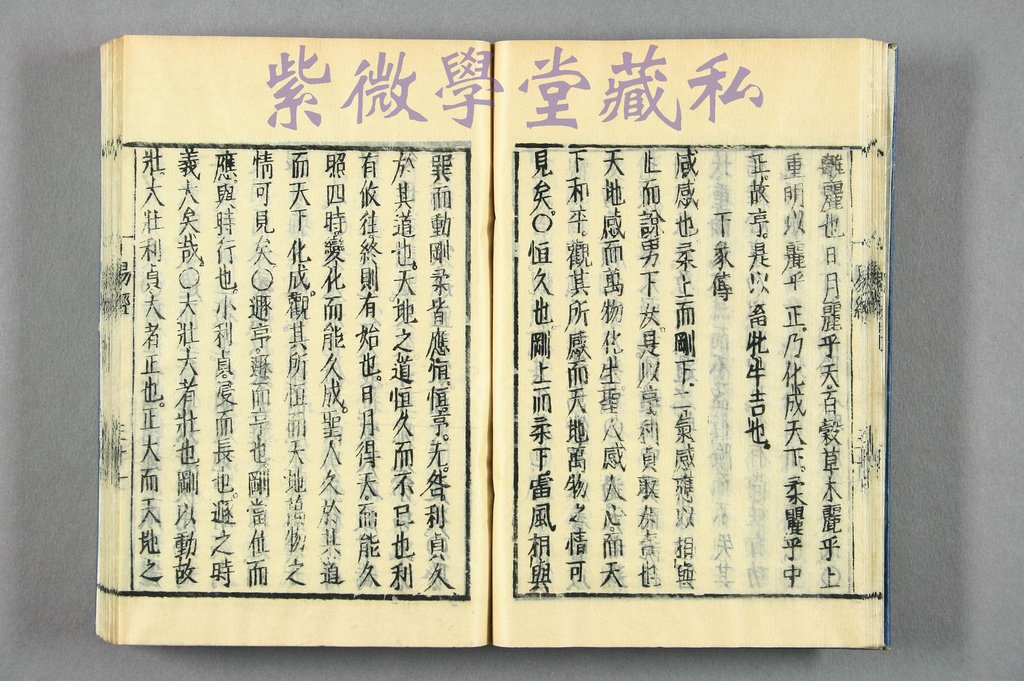 私藏堂學微紫
離麗也日月麗乎天百穀草木麗乎土
重明以麗乎正乃化成天下柔麗乎中
正故亨是以畜牝牛吉也
下彖傳
咸感也柔上而剛下二氣感應以相與
止而說男下女是以亨利貞取女吉也
天地感而萬物化生聖人感人心而天
下和平觀其所感而天地萬物之情可
見矣〇恒久也剛上而柔下雷風相與
巽而動剛柔皆應恒恒亨无咎利貞久
於其道也天地之道恒久而不已也利
有攸往終則有始也日月得天而能久
照四時變化而能久成聖人久於其道
而天下化成觀其所恒而天地萬物之
情可見矣〇遯亨遯而亨也剛當位而
應與時行也小利貞浸而長也遯之時
義大矣哉〇大壯大者壯也剛以動故
壯大壯利貞大者正也正大而天地之
易經
易經